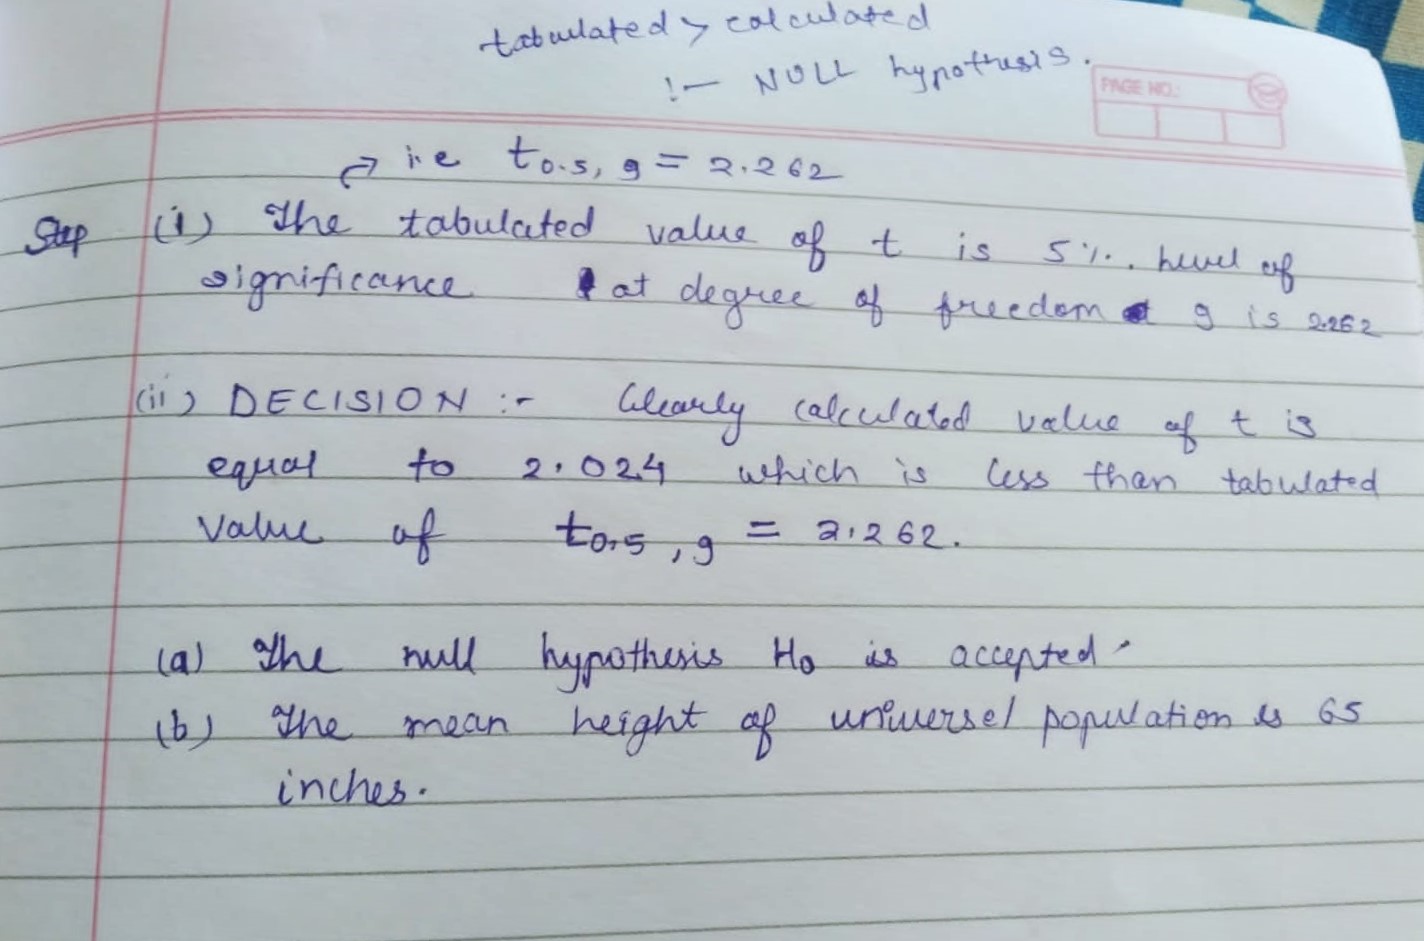 tabulated > calculated
:- NULL hypothesis.
PAGE NO.:
i.e t0.5, 9 = 2.262
Step (i) The tabulated value of t is 5%. level of
significance at degree of freedom 9 is 2.262
(ii) DECISION :- Clearly calculated value of t is
equal to 2.024 which is less than tabulated
value of t0.5, 9 = 2.262.
(a) The null hypothesis H0 is accepted.
(b) The mean height of universel population is 65
inches.